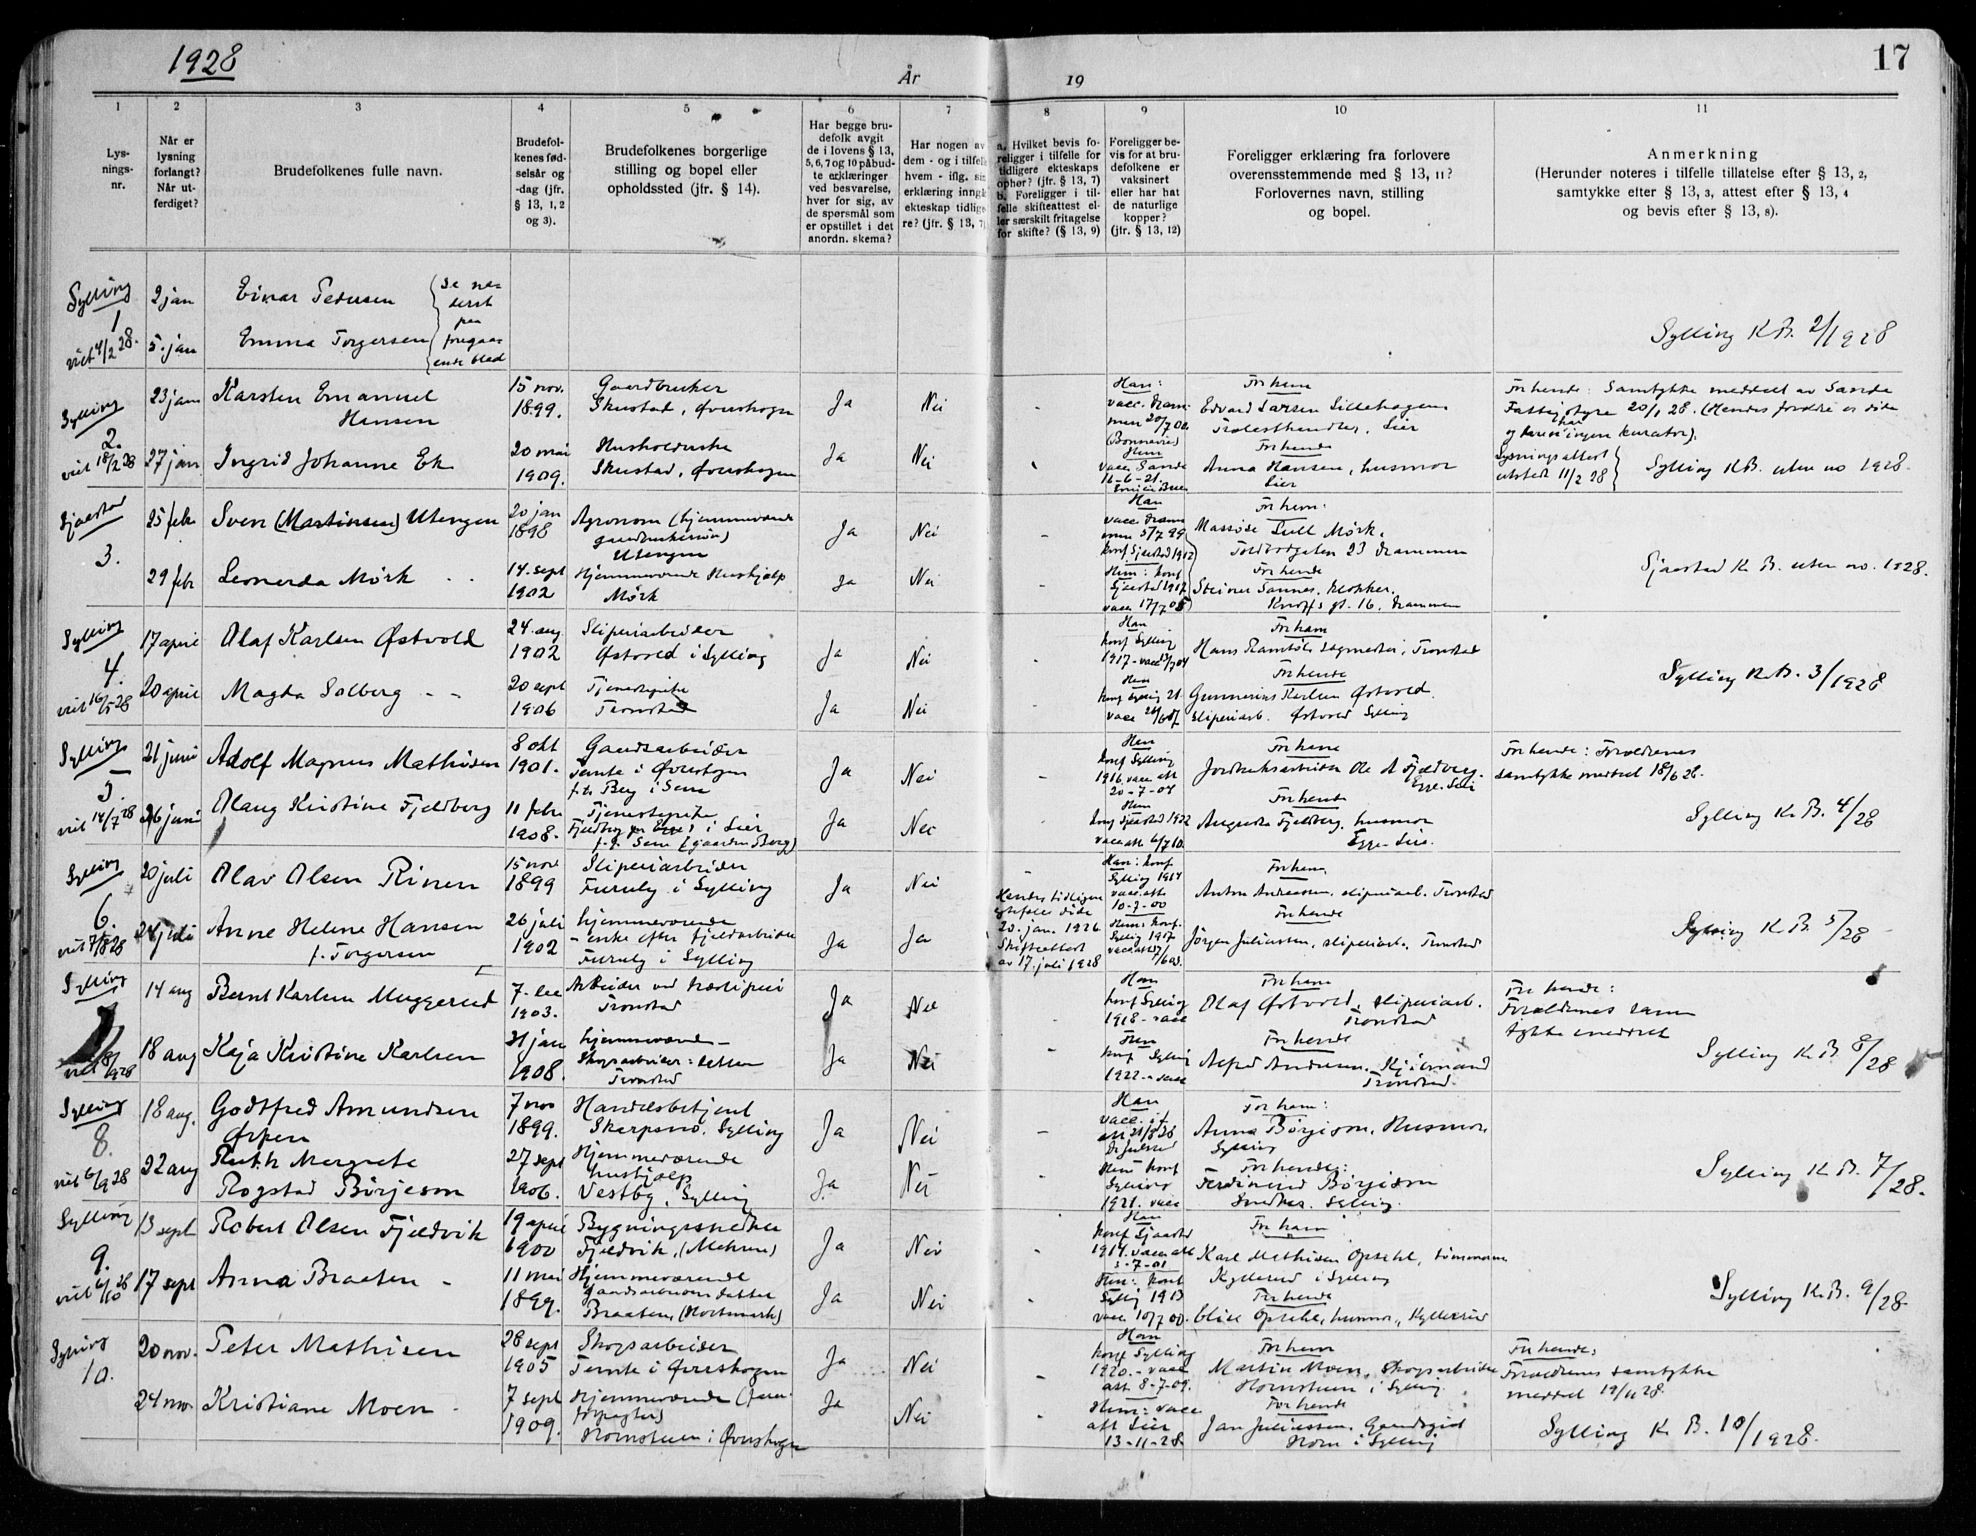 1928
År
19
17
1
2
3
4
5
6
7
8
9
10
11
Lys-
nings-
nr.
Når er
lysning
forlangt?
Når ut-
ferdiget?
Brudefolkenes fulle navn.
Brudefol-
kenes fød-
selsår og
-dag (jfr.
§ 13, 1, 2
og 3).
Brudefolkenes borgerlige
stilling og bopel eller
opholdssted (jfr. § 14).
Har begge bru-
defolk avgit
de i lovens § 13,
5, 6, 7 og 10 påbud-
te erklæringer
ved besvarelse,
hver for sig, av
de spørsmål som
er opstillet i det
anordn. skema?
Har nogen av
dem - og i tilfelle
hvem - iflg. sin
erklæring inngått
ekteskap tidlige-
re? (jfr. § 13, 7)
a. Hvilket bevis fo-
religger i tilfelle for
tidligere ekteskaps
ophør? (jfr. § 13, 7)
b. Foreligger i til-
felle skifteattest el-
ler særskilt fritagelse
for skifte? (§ 13, 9)
Foreligger be-
vis for at bru-
defolkene er
vaksinert
eller har hat
de naturlige
kopper?
(jfr. § 13, 12)
Foreligger erklæring fra forlovere
overensstemmende med § 13, 11?
Forlovernes navn, stilling
og bopel.
Anmerkning
(Herunder noteres i tilfelle tillatelse efter § 13, 2,
samtykke efter § 13, 3, attest efter § 13, 4
og bevis efter § 13, 8).
Sylling
1
viet 4/2 28.
2 jan
5. jan
Einar Pedersen
Emma Torgersen
Se ne-
derst
paa
foregaa-
ende blad
Sylling K.B. 2/1928
Sylling
2.
viet 18/2 28
23 jan
Karsten Emanuel
Hansen
15 nov.
1899.
Gaardbruker
Skustad, Øvreskogen
Ja
Nei
-
Han:
vacc. Dram-
men 20/7 00
(Bonnevie)
For ham
Edvard Larsen Lillehagen
Trælasthandler, Lier
For hende: Samtykke meddelt av Sande
Fattigstyre 20/1 28. (Hendes foreldre er døde
og har ingen kurator).
27 jan
Ingrid Johanne Ek
20 mai
1909.
Husholderske
Skustad, Øvreskogen
Ja
Nei
Hun
vacc. Sande
16-6-21.
For hende
Anna Hansen, husmor
Lier
Lysningsattest
utstedt 11/2 28
Sylling K.B. uten no 1928.
Sjaastad
3.
25 feb
Sven (Martinsen) Utengen
20 jan
1898
Agronom (hjemmeværende
gaardbrukersøn)
Utengen
Ja
Nei
-
Han
vacc. Dram
men 5/7 99
konf Sjaastad 1912
For ham:
Massøse Lull Mørk.
Toldbodgaten 23 Drammen
29 feb
Leonarda Mørk - -
14. sept
1902
Hjemmeværende Hushjælp
Mørk
Ja
Nei
Hun: konf
Sjaastad 1917
vacc 17/7 05
For hende
Steiner Sannes, klokker.
Knoffs gt. 16. Drammen
Sjaastad K. B. uten no. 1928.
Sylling
4.
viet 16/5 28
17 april
Olaf Karlsen Østvold
24. aug
1902
Sliperiarbeider
Østvold i Sylling
Ja
Nei
-
Han
konf Sylling
1917 - vacc 13/7 04
For ham
Hans Ramtøl, sagmester, Tronstad
20 april
Magda Solberg - -
20 sept
1906
Tjenestepike
Tronstad
Ja
Nei
Hun
konf Sylling 21.
For hende
Gunnerius Karlsen Østvold.
sliperiarb. Østvold Sylling
Sylling K.B. 3/1928
Sylling
5
viet 14/7 28
21 juni
Adolf Magnus Mathisen
8 okt
1901.
Gaardsarbeider
Temte i Øvreskogen
f. p. Berg i Sem
Ja
Nei
-
Han
konf Sylling
1916. vacc att
20-7-04
For ham
Jordbruksarbeider Ole A Fjeldberg.
Egge. Lier
For hende: Forældrenes
samtykke meddel 18/6 28.
26 juni
Olaug Kristine Fjeldberg
11 febr
1908.
Tjenestepike
Fjeldberg pr Egge i Lier
f. p. Sem (gaarden Berg)
Ja
Nei
Hun
konf Sjaastad 1922
vacc att 6/7 10.
For hende
Augusta Fjeldberg, husmor
Egge. Lier.
Sylling K.B. 4/28
Sylling
6.
viet 7/8 28
20 juli
Olav Olsen Rinen
15 nov
1899
Sliperiarbeider
Furuly i Sylling
Ja
Nei
Han: konf
Sylling 1914
vacc. att
10-7-00
For ham
Anton Andreassen, sliperiarb. Tronstad
24 juli
Anne Helene Hansen
f. Torgersen
26 juli
1902
hjemmeværende
- enke efter fjeldarbeider
Furuly i Sylling
Ja
Ja
Hendes tidligere
egtefelle døde
20. jan. 1926
Skifteattest
av 17. juli 1928
Hun: konf.
Sylling 1917
For hende
Jørgen Juliussen, sliperiarb., Tronstad
Sylling K. B. 5/28
Sylling
viet 8/9 1928
14 aug
Bernt Karlsen Muggerud
7. dec
1903.
Arbeider ved træsliperi
Tronstad
Ja
Nei
-
Han
konf Sylling
1918 - vacc
For ham
Olaf Østvold, sliperiarb.
Tronstad
For hende:
Forældrenes sam
tykke meddelt
18 aug
Kaja Kristine Karlsen
31 jan
1908.
hjemmeværende -
Skogsarbeider: datter
Tronstad
Ja
Nei
-
Hun
konf Sylling
1922 - vacc
For hende
Alfred Andersen, Kjølmand
Tronstad.
Sylling K. B. 8/28
Sylling
8.
viet 6/9 28
18 aug.
Godtfred Amundsen
Ørpen
7 nov
1899.
Handelsbetjent
Skarpsno, Sylling
Ja
Nei
-
Han
vacc. if
att 21/8 28
For ham:
Anna Børjeson, Husmor,
Sylling
22 aug
Ruth Margrete
Rogstad Børjeson
27 sept
1906.
Hjemmeværende
hushjælp
Vestby, Sylling
Ja
Nei
Hun konf
Sylling
1921. vacc
For hende:
Ferdinand Børjeson
Snedker. Sylling.
Sylling K. B. 7/28.
Sylling
9.
viet 6/10 28
13 sept
Robert Olsen Fjeldvik
19 april
1900
Bygningssnedker
Fjeldvik, (Mehren)
Ja
Nei
-
Han
konf Sjaastad
1914. vacc att
3-7-01
For ham
Karl Mathisen Opsahl, tømmerm
Kyllerud i Sylling
17 sept
Anna Braaten -
11 mai
1899.
Hjemmeværende
gaardsarbeiderdatter
Braaten, (Nortmark)
Ja
Nei
-
Hun: konf
Sylling 1913
vacc 10/7 00.
For hende
Olise Opsahl, husmor, Kyllerud
Sylling K.B. 9/28
Sylling
10.
20 nov.
Peter Mathisen
28 sept
1905
Skogsarbeider
Temte i Øvreskogen
Ja
Nei
-
Han
konf Sylling
1920. - vacc
att 8-7-09.
For ham
Martin Moen, Skogsarbeider
Hornstuen i Sylling
For hende:
Forældrenes samtykke
meddel 19/11 28.
24 nov
Kristiane Moen -
7 sept
1909.
Hjemmeværende
Hornstuen i Øvreskogen
Ja
Nei
-
Hun: vacc
att Lier
13-11-28
For hende
Jan Juliussen, Gaardsgut
Horn i Sylling
Sylling K. B. 10/1928.